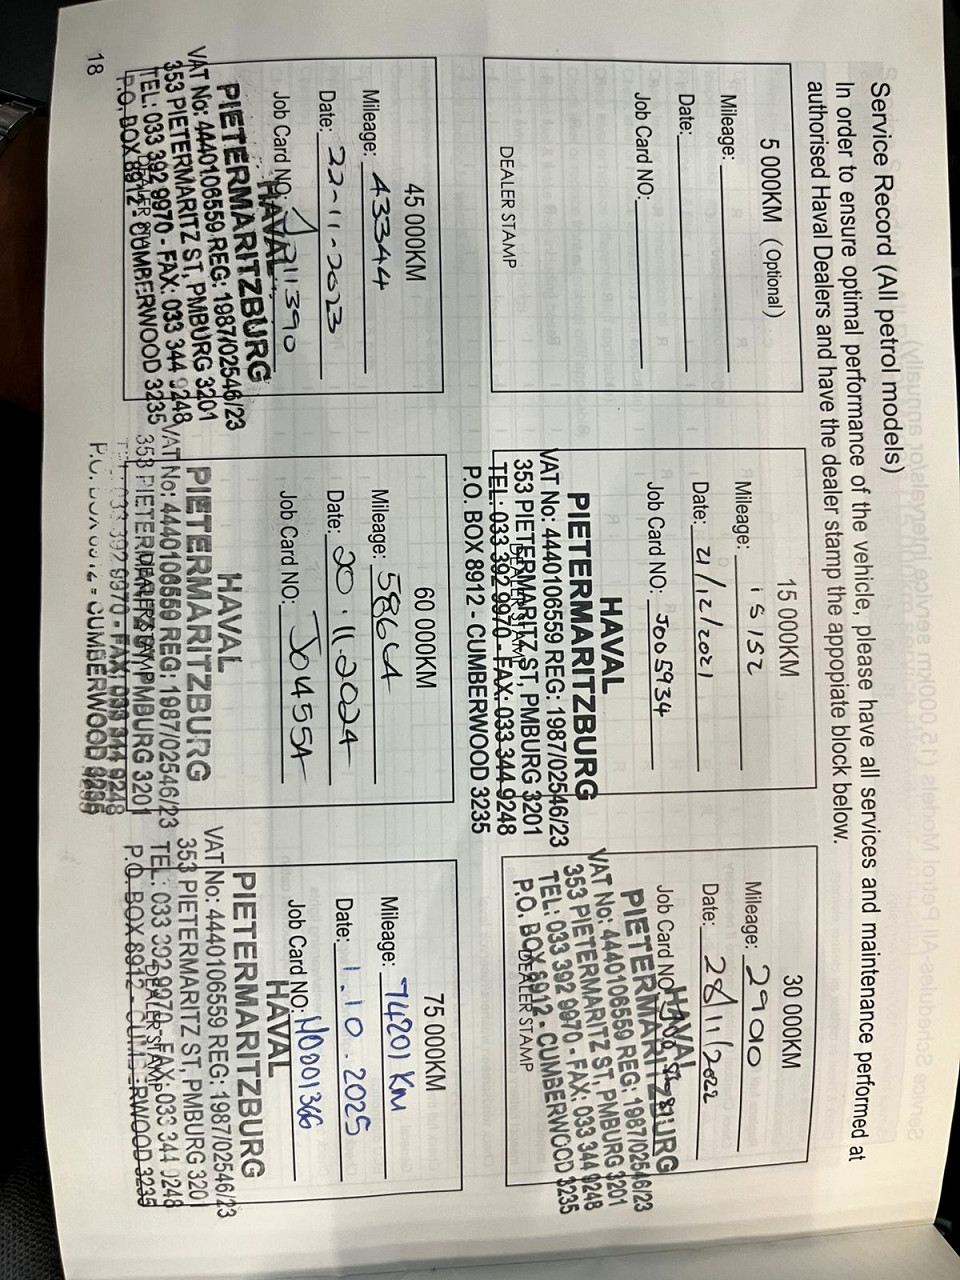 Service Record (All petrol models)
In order to ensure optimal performance of the vehicle, please have all services and maintenance performed at
authorised Haval Dealers and have the dealer stamp the appopiate block below.
5 000KM (Optional)
Mileage:
Date:
Job Card NO:
DEALER STAMP
15 000KM
Mileage: 15152
Date: 21/12/2021
Job Card NO: J005934
HAVAL
PIETERMARITZBURG
VAT No: 4440106559 REG: 1987/02546/23
353 PIETERMARITZ ST, PMBURG 3201
TEL: 033 392 9970 - FAX: 033 344 9248
DEALER STAMP
P.O. BOX 8912 - CUMBERWOOD 3235
30 000KM
Mileage: 29010
Date: 28/11/2022
Job Card NO:
HAVAL
PIETERMARITZBURG
VAT No: 4440106559 REG: 1987/02546/23
353 PIETERMARITZ ST, PMBURG 3201
TEL: 033 392 9970 - FAX: 033 344 9248
P.O. BOX 8912 - CUMBERWOOD 3235
DEALER STAMP
45 000KM
Mileage: 43344
Date: 22-11-2023
Job Card NO:
HAVAL
PIETERMARITZBURG
VAT No: 4440106559 REG: 1987/02546/23
353 PIETERMARITZ ST, PMBURG 3201
TEL: 033 392 9970 - FAX: 033 344 9248
DEALER STAMP
P.O. BOX 8912 - CUMBERWOOD 3235
60 000KM
Mileage:
Date: 20.11.2024
Job Card NO:
HAVAL
PIETERMARITZBURG
VAT No: 4440106559 REG: 1987/02546/23
353 PIETERMARITZ ST, PMBURG 3201
DEALER STAMP
033 392 9970 - FAX: 033 344 9248
P.O. BOX 8912 - CUMBERWOOD 3235
75 000KM
Mileage: 74201 Km
Date: 1.10.2025
Job Card NO: H0001366
HAVAL
PIETERMARITZBURG
VAT No: 4440106559 REG: 1987/02546/23
353 PIETERMARITZ ST, PMBURG 3201
TEL: 033 392 9970 - FAX: 033 344 9248
DEALER STAMP
P.O. BOX 8912 - CUMBERWOOD 3235
18